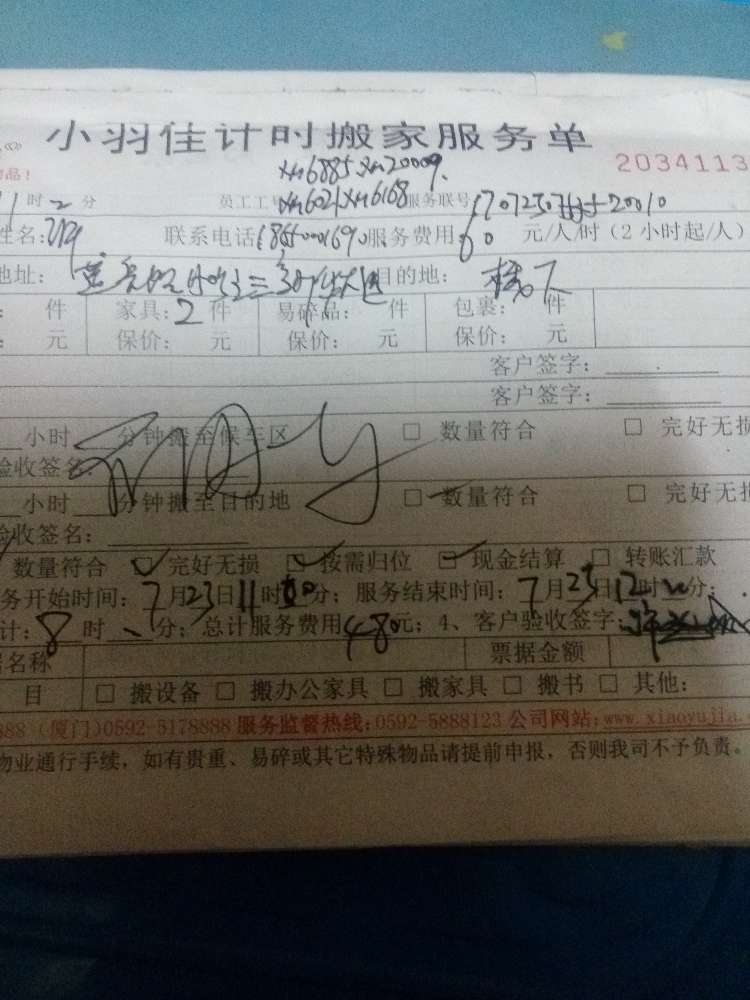 小羽佳计时搬家服务单
品! 2034113
xm6885 xm20009
时2分 员工工号 xm6021 xm6168 服务联号
姓名: 联系电话 服务费用:60元/人/时(2小时起/人)
地址: 目的地:楼下
: 件 家具:2件 易碎品: 件 包裹: 件
: 元 保价: 元 保价: 元 保价: 元
客户签字:
客户签字:
小时 分钟搬至候车区 □ 数量符合 □ 完好无损
验收签名:
小时 分钟搬至目的地 □ 数量符合 □ 完好无损
验收签名:
数量符合 ☑ 完好无损 ☑ 按需归位 ☑ 现金结算 □ 转账汇款
务开始时间:7月23日11时00分; 服务结束时间:7月23日12时 分;
计:8时 分; 总计服务费用480元; 4、客户验收签字:
名称 票据金额
目 □ 搬设备 □ 搬办公家具 □ 搬家具 □ 搬书 □ 其他:
888 (厦门)0592-5178888 服务监督热线:0592-5888123 公司网站:www.xiaoyujia.
物业通行手续,如有贵重、易碎或其它特殊物品请提前申报,否则我司不予负责。